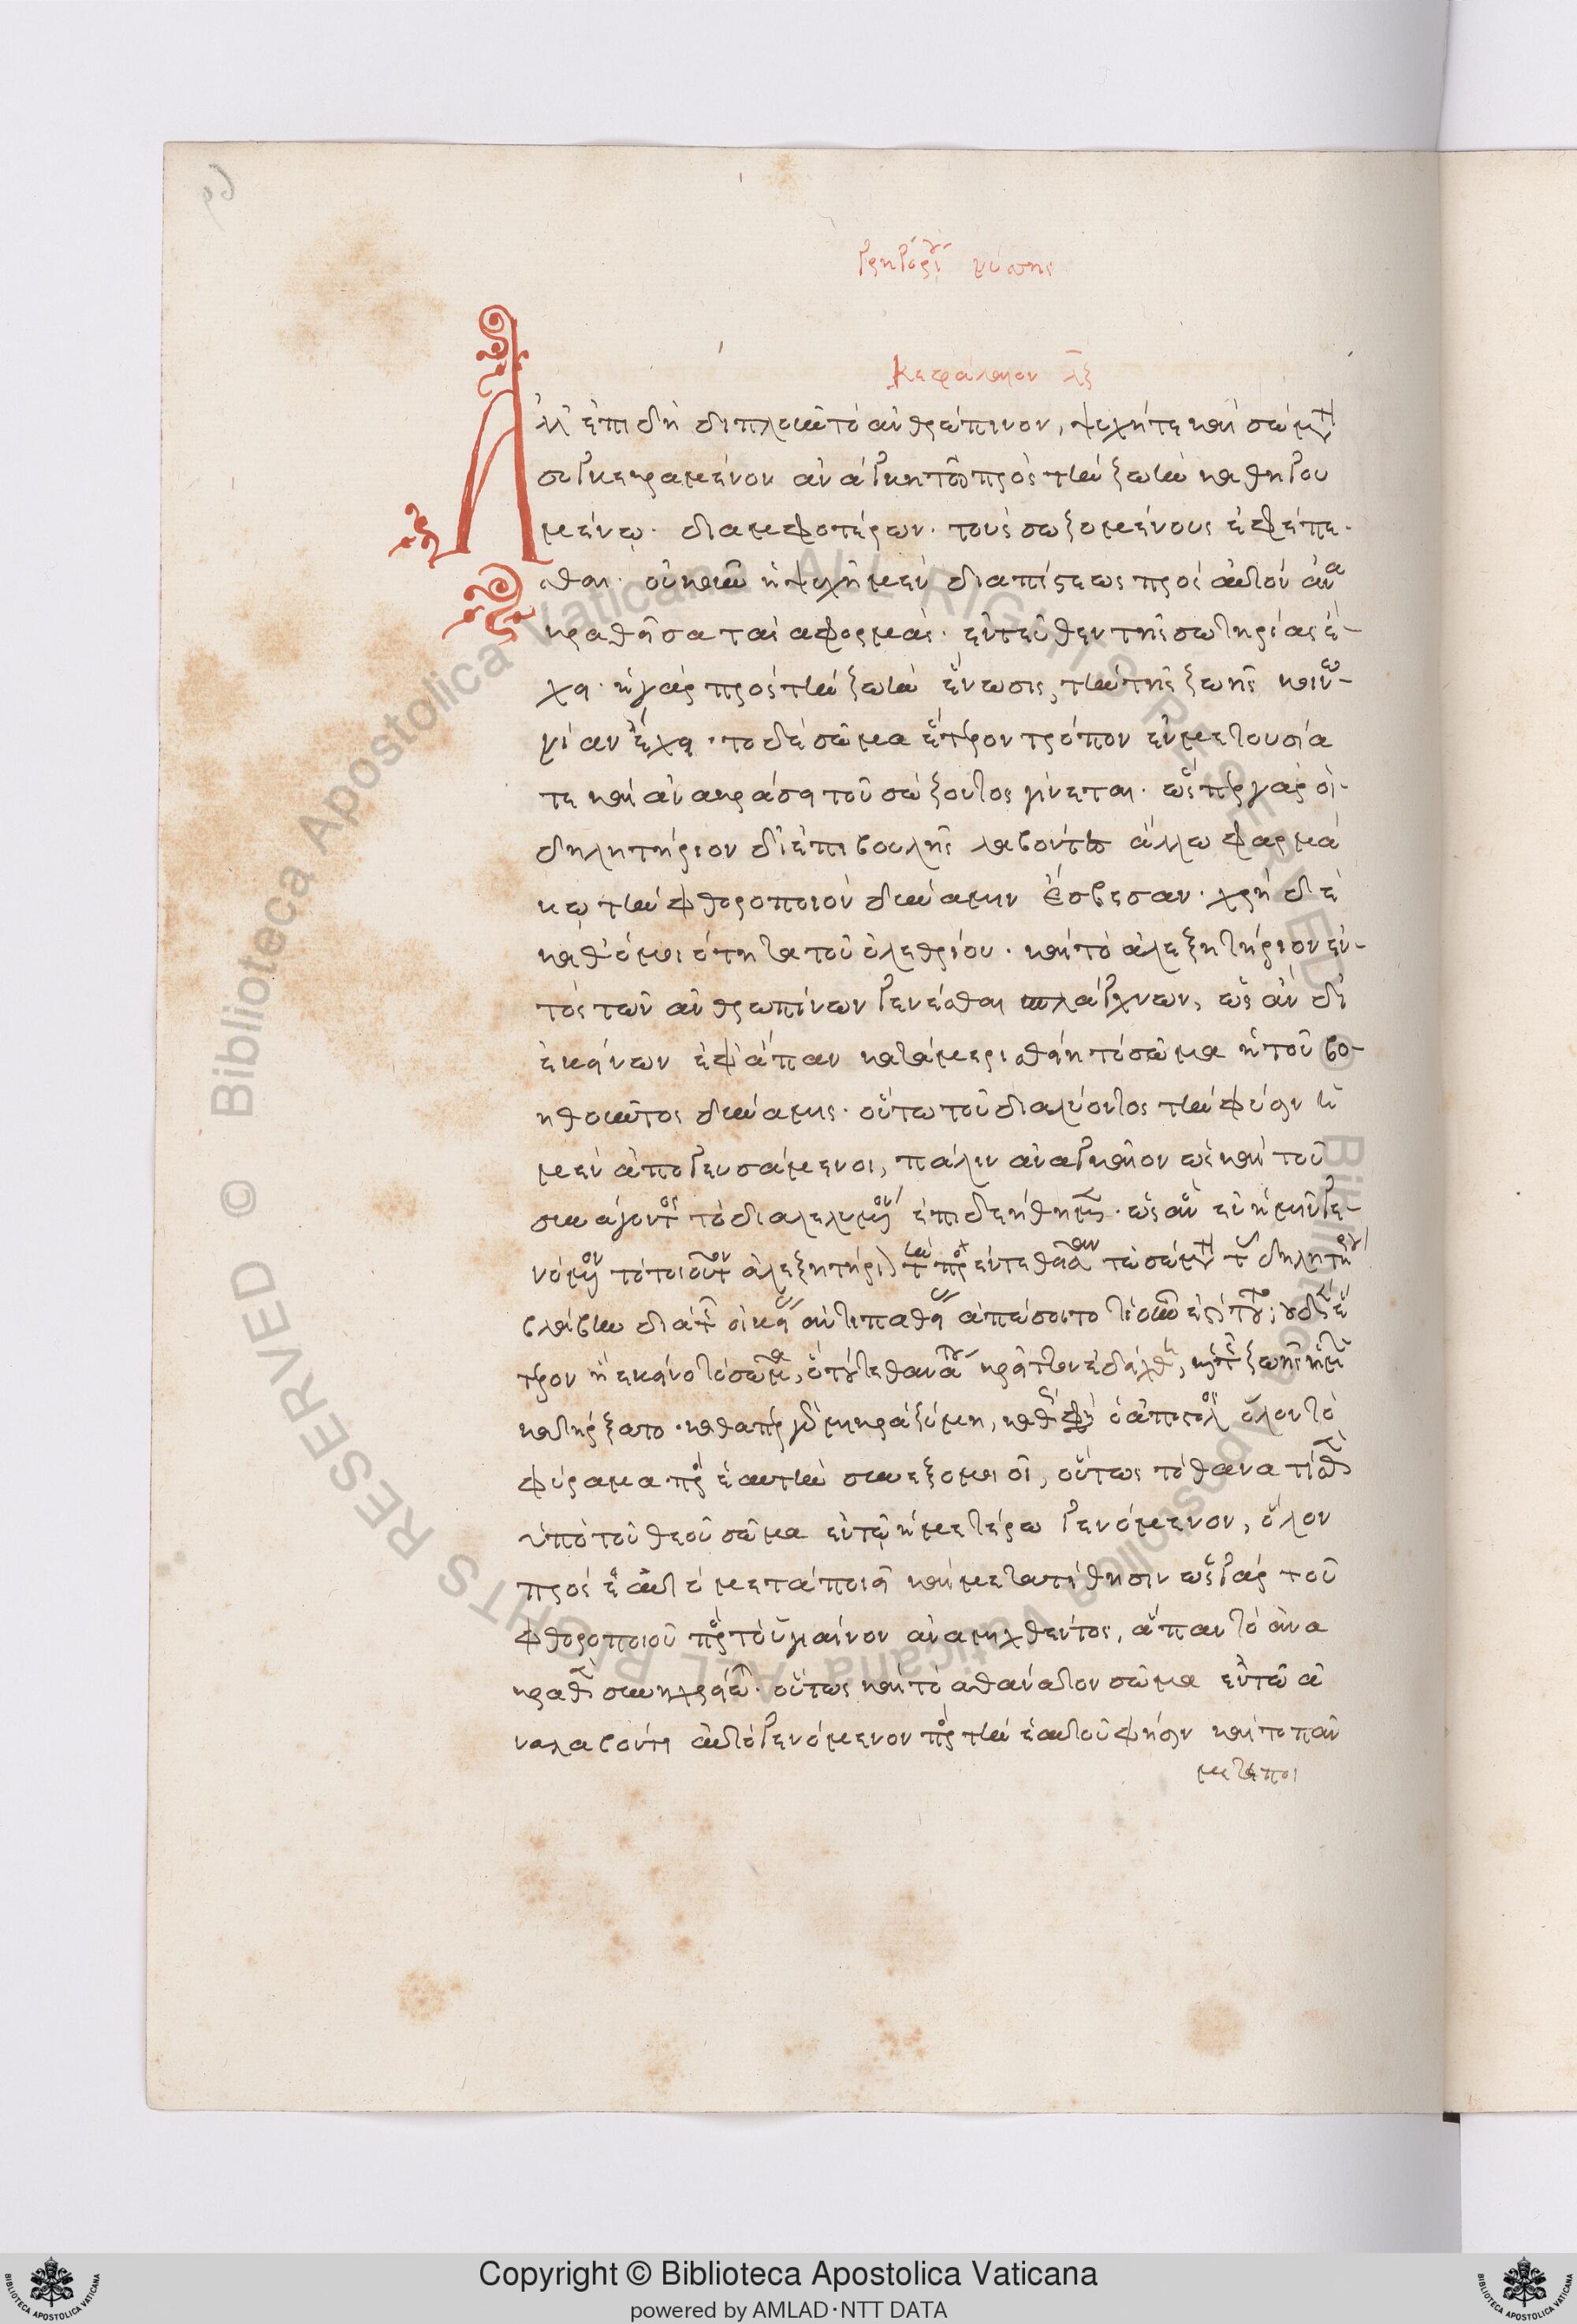 Γρηγορίου νύσης
Κεφάλαιον λζ
Ἀλλ' ἐπιδὴ διπλοῦν τὸ ἀνθρώπινον, ψυχῆ τε καὶ σώματι
συγκεκραμένον ἀνάγκη τῶ πρὸς τὴν ζωὴν καθηγου
μένω. δι ἀμφοτέρων. τοὺς σωζομένους ἐφέπε-
σθαι. οὐκοῦν ἡ ψυχὴ μὲν διὰ πίστεως πρὸς αὐτὸν ἀνα
κραθεῖσα τὰς ἀφορμὰς. ἐντεῦθεν τῆς σωτηρίας ἔ-
χει. ἡ γὰρ πρὸς τὴν ζωὴν ἕνωσις, τὴν τῆς ζωῆς κοινω-
νίαν ἔχει. το δὲ σῶμα ἕτερον τρόπον ἐν μετουσία
τε καὶ ἀνακράσει τοῦ σώζοντος γίνεται. ὥσπερ γὰρ οἱ
δηλητήριον δι ἐπιβουλῆς λαβόντες ἄλλω φαρμά
κω τὴν φθοροποιὸν δύναμιν ἔσβεσαν. χρὴ δὲ
καθ' ὁμοιότητα τοῦ ὀλεθρίου. καὶ τὸ ἀλεξητήριον ἐν-
τὸς τῶν ἀνθρωπίνων γενέσθαι σπλάγχνων, ὡς ἂν δι
ἐκείνων ἐφ' ἅπαν καταμερισθείη τὸ σῶμα ἡ τοῦ βο-
ηθοῦντος δύναμις. οὕτω τοῦ διαλύοντος τὴν φύσιν ἡ
μῶν ἀπογευσάμενοι, πάλιν ἀναγκαῖον ὡς καὶ τοῦ
συνάγοντος τὸ διαλελυμένον ἐπιδεηθῆναι. ὡς ἂν ἐν ἡμῖν γε-
νόμενον τὸ τοιοῦτον ἀλεξητήριον τὴν προεντεθεῖσαν τῶ σώματι τοῦ δηλητηρίου
βλάβην διὰ τῆς οἰκείας ἀντιπαθείας ἀπώσοιτο τί οὖν ἐστὶ τοῦτο; οὐδὲν ἕ
τερον ἢ ἐκεῖνο τὸ σῶμα, ὃ τοῦ τε θανάτου κρεῖττον ἐδείχθη, καὶ τῆς ζωῆς ἡμῖν
κατήρξατο. καθάπερ γὰρ μικρὰ ζύμη, καθώς φησιν ὁ ἀπόστολος ὅλον τὸ
φύραμα πρὸς ἑαυτὴν συνεξομοιοῖ, οὕτως τὸ θανατισθὲν
ὑπὸ τοῦ θεοῦ σῶμα ἐν τῶ ἡμετέρω γενόμενον, ὅλον
πρὸς ἑαυτὸ μεταποιεῖ καὶ μετατίθησιν ὡς γὰρ τοῦ
φθοροποιοῦ πρὸς τὸ ὑγιαίνον ἀναμιχθέντος, ἅπαν τὸ ἀνα
κραθὲν συνηχρείωται. οὕτως καὶ τὸ ἀθάνατον σῶμα ἐν τῶ ἀ
ναλαβόντι αὐτὸ γενόμενον πρὸς τὴν ἑαυτοῦ φύσιν καὶ το πᾶν
μεταποι
Copyright © Biblioteca Apostolica Vaticana
powered by AMLAD·NTT DATA